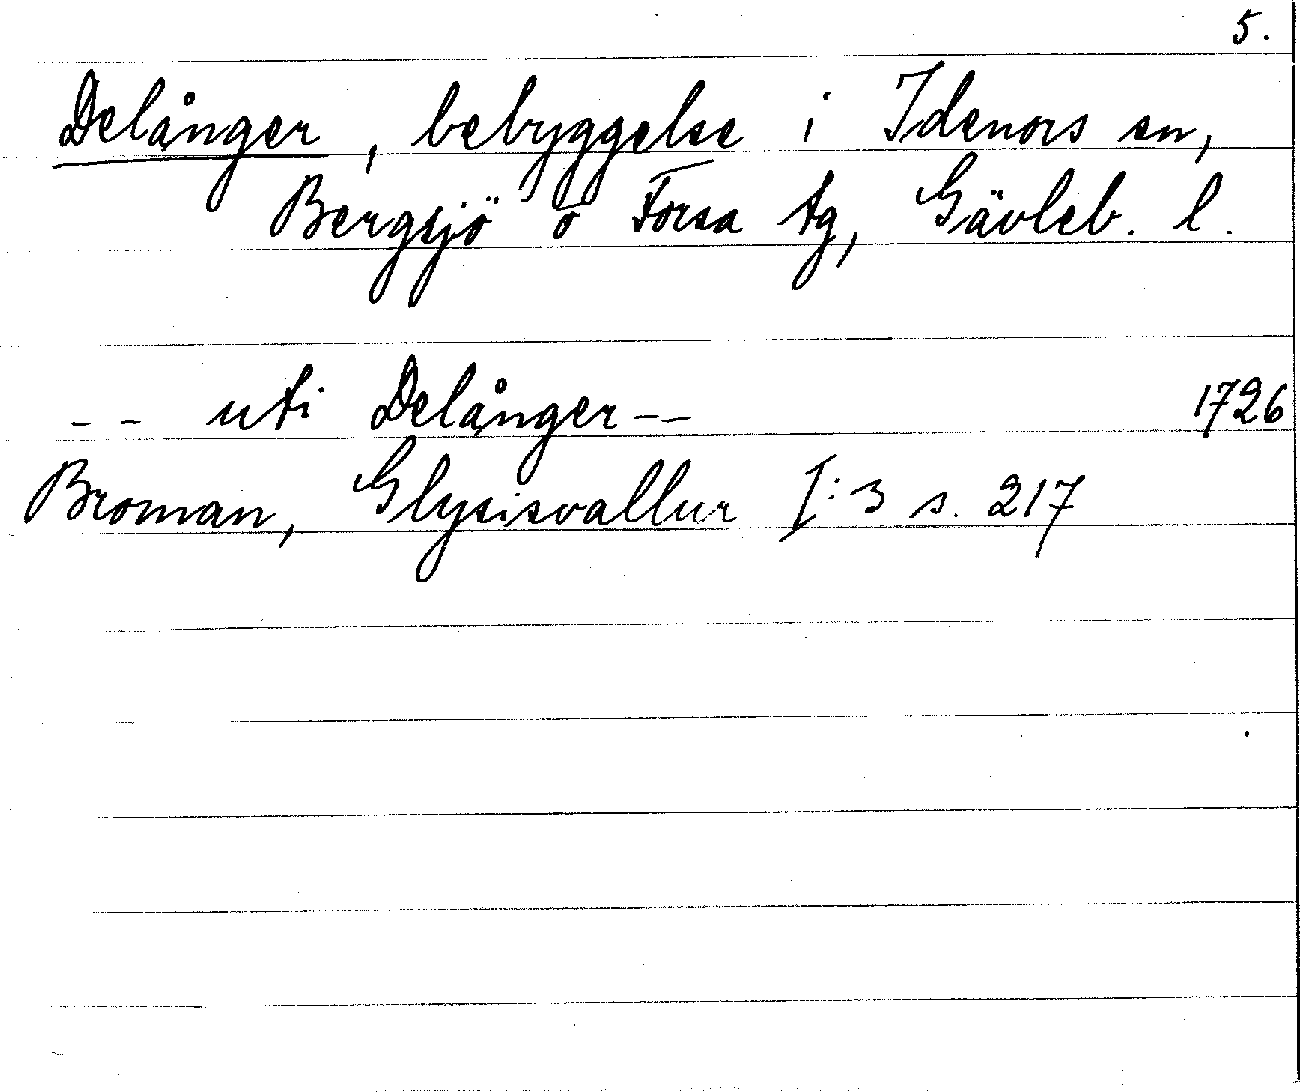 5.
Delånger, bebyggelse i Idenors sn,
Bergsjö o Forsa tg, Gävleb. l.
-- uti Delånger--
1726
Broman, Glysisvallur I:3 s. 217